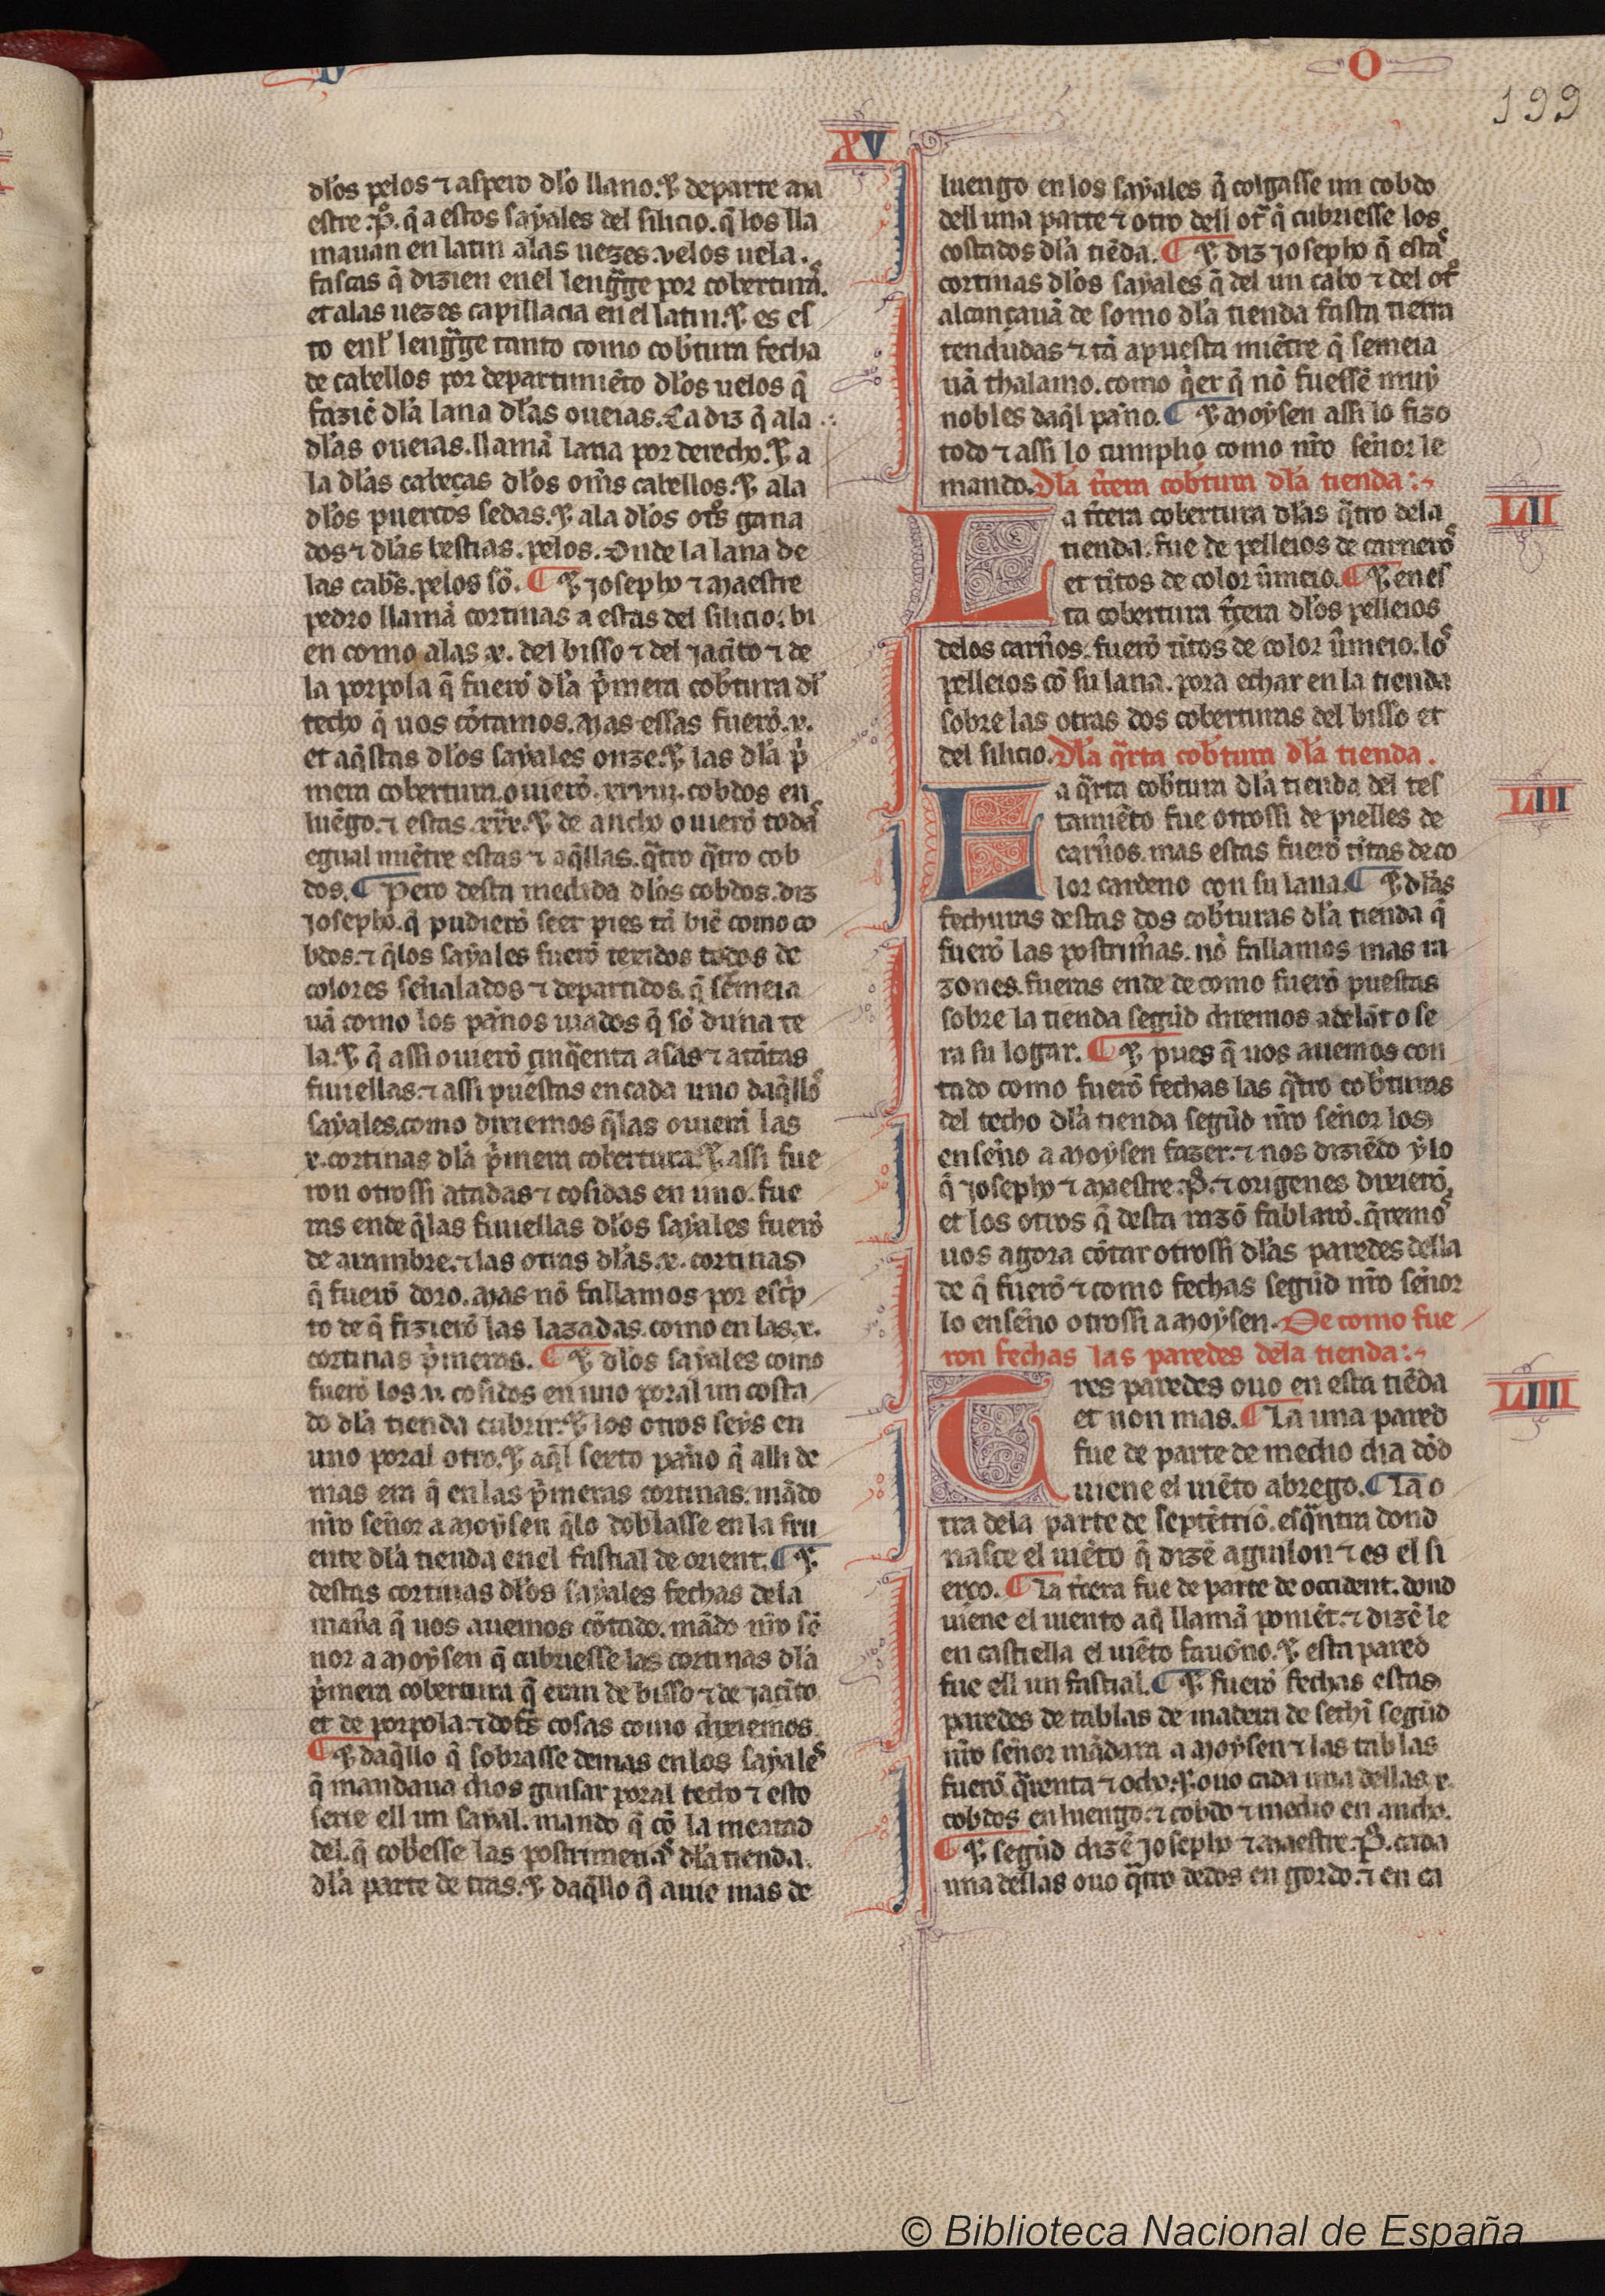 O
199
XV
dl̕os pelos ⁊ aspero dl̕o llano. ⁊ departe ma
estre .P̊. q̃ a estos sayales del silicio. q̃ los lla
mauan en latin alas uezes. uelos uela.
fascas q̃ dizien enel lengg̃e por coberturas.
et alas uezes capillacia en el latin. ⁊ es es
to enl̕ lengg̃e tanto como cob̕tura fecha
de cabellos por departimiẽto dl̕os uelos q̃
faziẽ dl̕a lana dl̕as oueias. Ca diz q̃ ala
dl̕as oueias. llamã lana por derecho. ⁊ a
la dl̕as cabeças dl̕os om̃s cabellos. ⁊ ala
dl̕os puercos sedas. ⁊ ala dl̕os ot̃s gana
dos ⁊ dl̕as bestias. pelos. Onde la lana de
las cab̕s. pelos sõ. ¶ ⁊ Josepho ⁊ Maestre
pedro llamã cortinas a estas del silicio. bi
en como alas .x. del bisso ⁊ del jacĩto ⁊ de
la porpola q̃ fuerõ dl̕a p̃mera cob̕tura dl̕
techo q̃ uos cõtamos. Mas essas fuerõ .x.
et aq̃stas dl̕os sayales onze. ⁊ las dl̕a p̃
mera cobertura ouierõ .xxviii. cobdos en
luẽgo. ⁊ estas .xxx. ⁊ de ancho ouierõ todas
egual miẽtre estas ⁊ aq̃llas. q̃tro q̃tro cob
dos. ¶ Pero desta medida dl̕os cobdos. diz
Josepho. q̃ pudierõ seer pies tã biẽ como co
bdos. ⁊ q̃los sayales fuerõ texidos todos de
colores señalados ⁊ departidos. q̃ semeia
uã como los paños uiados q̃ sõ duna te
la. ⁊ q̃ assi ouierõ cinq̃enta asas ⁊ atãtas
fiuiellas. ⁊ assi puestas en cada uno daq̃llos
sayales. como dixiemos q̃las ouierã las
x. cortinas dl̕a p̃mera cobertura. ⁊ assi fue
ron otrossi atadas ⁊ cosidas en uno. fue
ras ende q̃las fiuiellas dl̕os sayales fuerõ
de arambre. ⁊ las otras dl̕as .x. cortinas
q̃ fuerõ doro. Mas nõ fallamos por escp̃
to de q̃ fizierõ las lazadas. como en las .x.
cortinas p̃meras. ¶ ⁊ dl̕os sayales como
fuerõ los .v. cosidos en uno poral un costa
do dl̕a tienda cubrir. ⁊ los otros seys en
uno poral otro. ⁊ aq̃l sexto paño q̃ alli de
mas era q̃ en las p̃meras cortinas. mãdo
nr̃o señor a Moysen q̃lo doblasse en la fru
ente dl̕a tienda enel fastial de orient. ¶ ⁊
destas cortinas dl̕os sayales fechas dela
mañã q̃ uos auemos cõtado. mãdo nr̃o se
ñor a Moysen q̃ cubriesse las cortinas dl̕a
p̃mera cobertura q̃ eran de bisso ⁊ de jacĩto
et de porpola. ⁊ dot̃s cosas como dixiemos.
¶ ⁊ daq̃llo q̃ sobrasse demas en los sayales
q̃ mandaua dios guisar poral techo ⁊ esto
serie ell un sayal. mando q̃ cõ la meatad
del. q̃ cob̕esse las postrimerias dl̕a tienda.
dl̕a parte de tras. ⁊ daq̃llo q̃ auie mas de
luengo en los sayales q̃ colgasse un cobdo
dell una parte ⁊ otro dell ot̃ q̃ cubriesse los
costados dl̕a tiẽda. ¶ ⁊ diz josepho q̃ estas
cortinas dl̕os sayales q̃ del un cabo ⁊ del ot̃
alcançauã de somo dl̕a tienda fasta tierra
tendudas ⁊ tã apuesta miẽtre q̃ semeia
uã thalamo. como q̃er q̃ nõ fuessẽ muy
nobles daq̃l paño. ¶ ⁊ Moysen assi lo fizo
todo ⁊ assi lo cumplio como nr̃o señor le
mando. Dl̕a t̃cera cob̕tura dl̕a tienda:~
LII
La t̃cera cobertura dl̕as q̃tro dela
tienda. fue de pelleios de carneros
et tĩtos de color ũmeio. ¶ ⁊ en es
ta cobertura t̃cera dl̕os pelleios
delos carños. fuerõ tĩtos de color ũmeio. los
pelleios cõ su lana. pora echar en la tienda
sobre las otras dos coberturas del bisso et
del silicio. Dl̕a q̃rta cob̕tura dl̕a tienda.
LIII
La q̃rta cob̕tura dl̕a tienda del tes
tamiẽto fue otrossi de pielles de
carños. mas estas fuerõ tĩtas de co
lor cardeno con su lana. ¶ ⁊ dl̕as
fechuras destas dos cob̕turas dl̕a tienda q̃
fuerõ las postrim̃as. nõ fallamos mas ra
zones. fueras ende de como fuerõ puestas
sobre la tienda segũd diremos adelãt o se
ra su logar. ¶ ⁊ pues q̃ uos auemos con
tado como fuerõ fechas las q̃tro cob̕turas
del techo dl̕a tienda segũd nr̃o señor los
enseño a Moysen fazer. ⁊ nos diziẽdo y lo
q̃ Josepho ⁊ Maestre .P̊. ⁊ origenes dixierõ.
et los otros q̃ desta razõ fablarõ. q̃remos
uos agora cõtar otrossi dl̕as paredes della
de q̃ fuerõ ⁊ como fechas segũd nr̃o señor
lo enseño otrossi a Moysen. De como fue
ron fechas las paredes dela tienda:~
LIIII
Tres paredes ouo en esta tiẽda
et non mas. ¶ La una pared
fue de parte de medio dia dõd
uiene el uiẽto abrego. ¶ La o
tra dela parte de septẽtriõ. esq̃ntra dond
nasce el uiẽto q̃ dizẽ aguilon ⁊ es el si
erço. ¶ La t̃cera fue de parte de occident. dond
uiene el uiento aq̃ llamã poniẽt. ⁊ dizẽ le
en castiella el uiẽto fauoño. ⁊ esta pared
fue ell un fastial. ¶ ⁊ fuerõ fechas estas
paredes de tablas de madera de sethĩ segũd
nr̃o señor mãdara a Moysen ⁊ las tablas
fuerõ q̃renta ⁊ ocho. ⁊ ouo cada una dellas .x.
cobdos en luengo. ⁊ cobdo ⁊ medio en ancho.
¶ ⁊ segũd dizẽ Josepho ⁊ Maestre .P̊. cada
una dellas ouo q̃tro dedos en gordo. ⁊ en ca
© Biblioteca Nacional de España